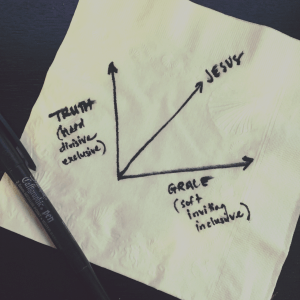 JESUS
TRUTH
(hard
divisive
exclusive)
GRACE
(soft
inviting
inclusive)